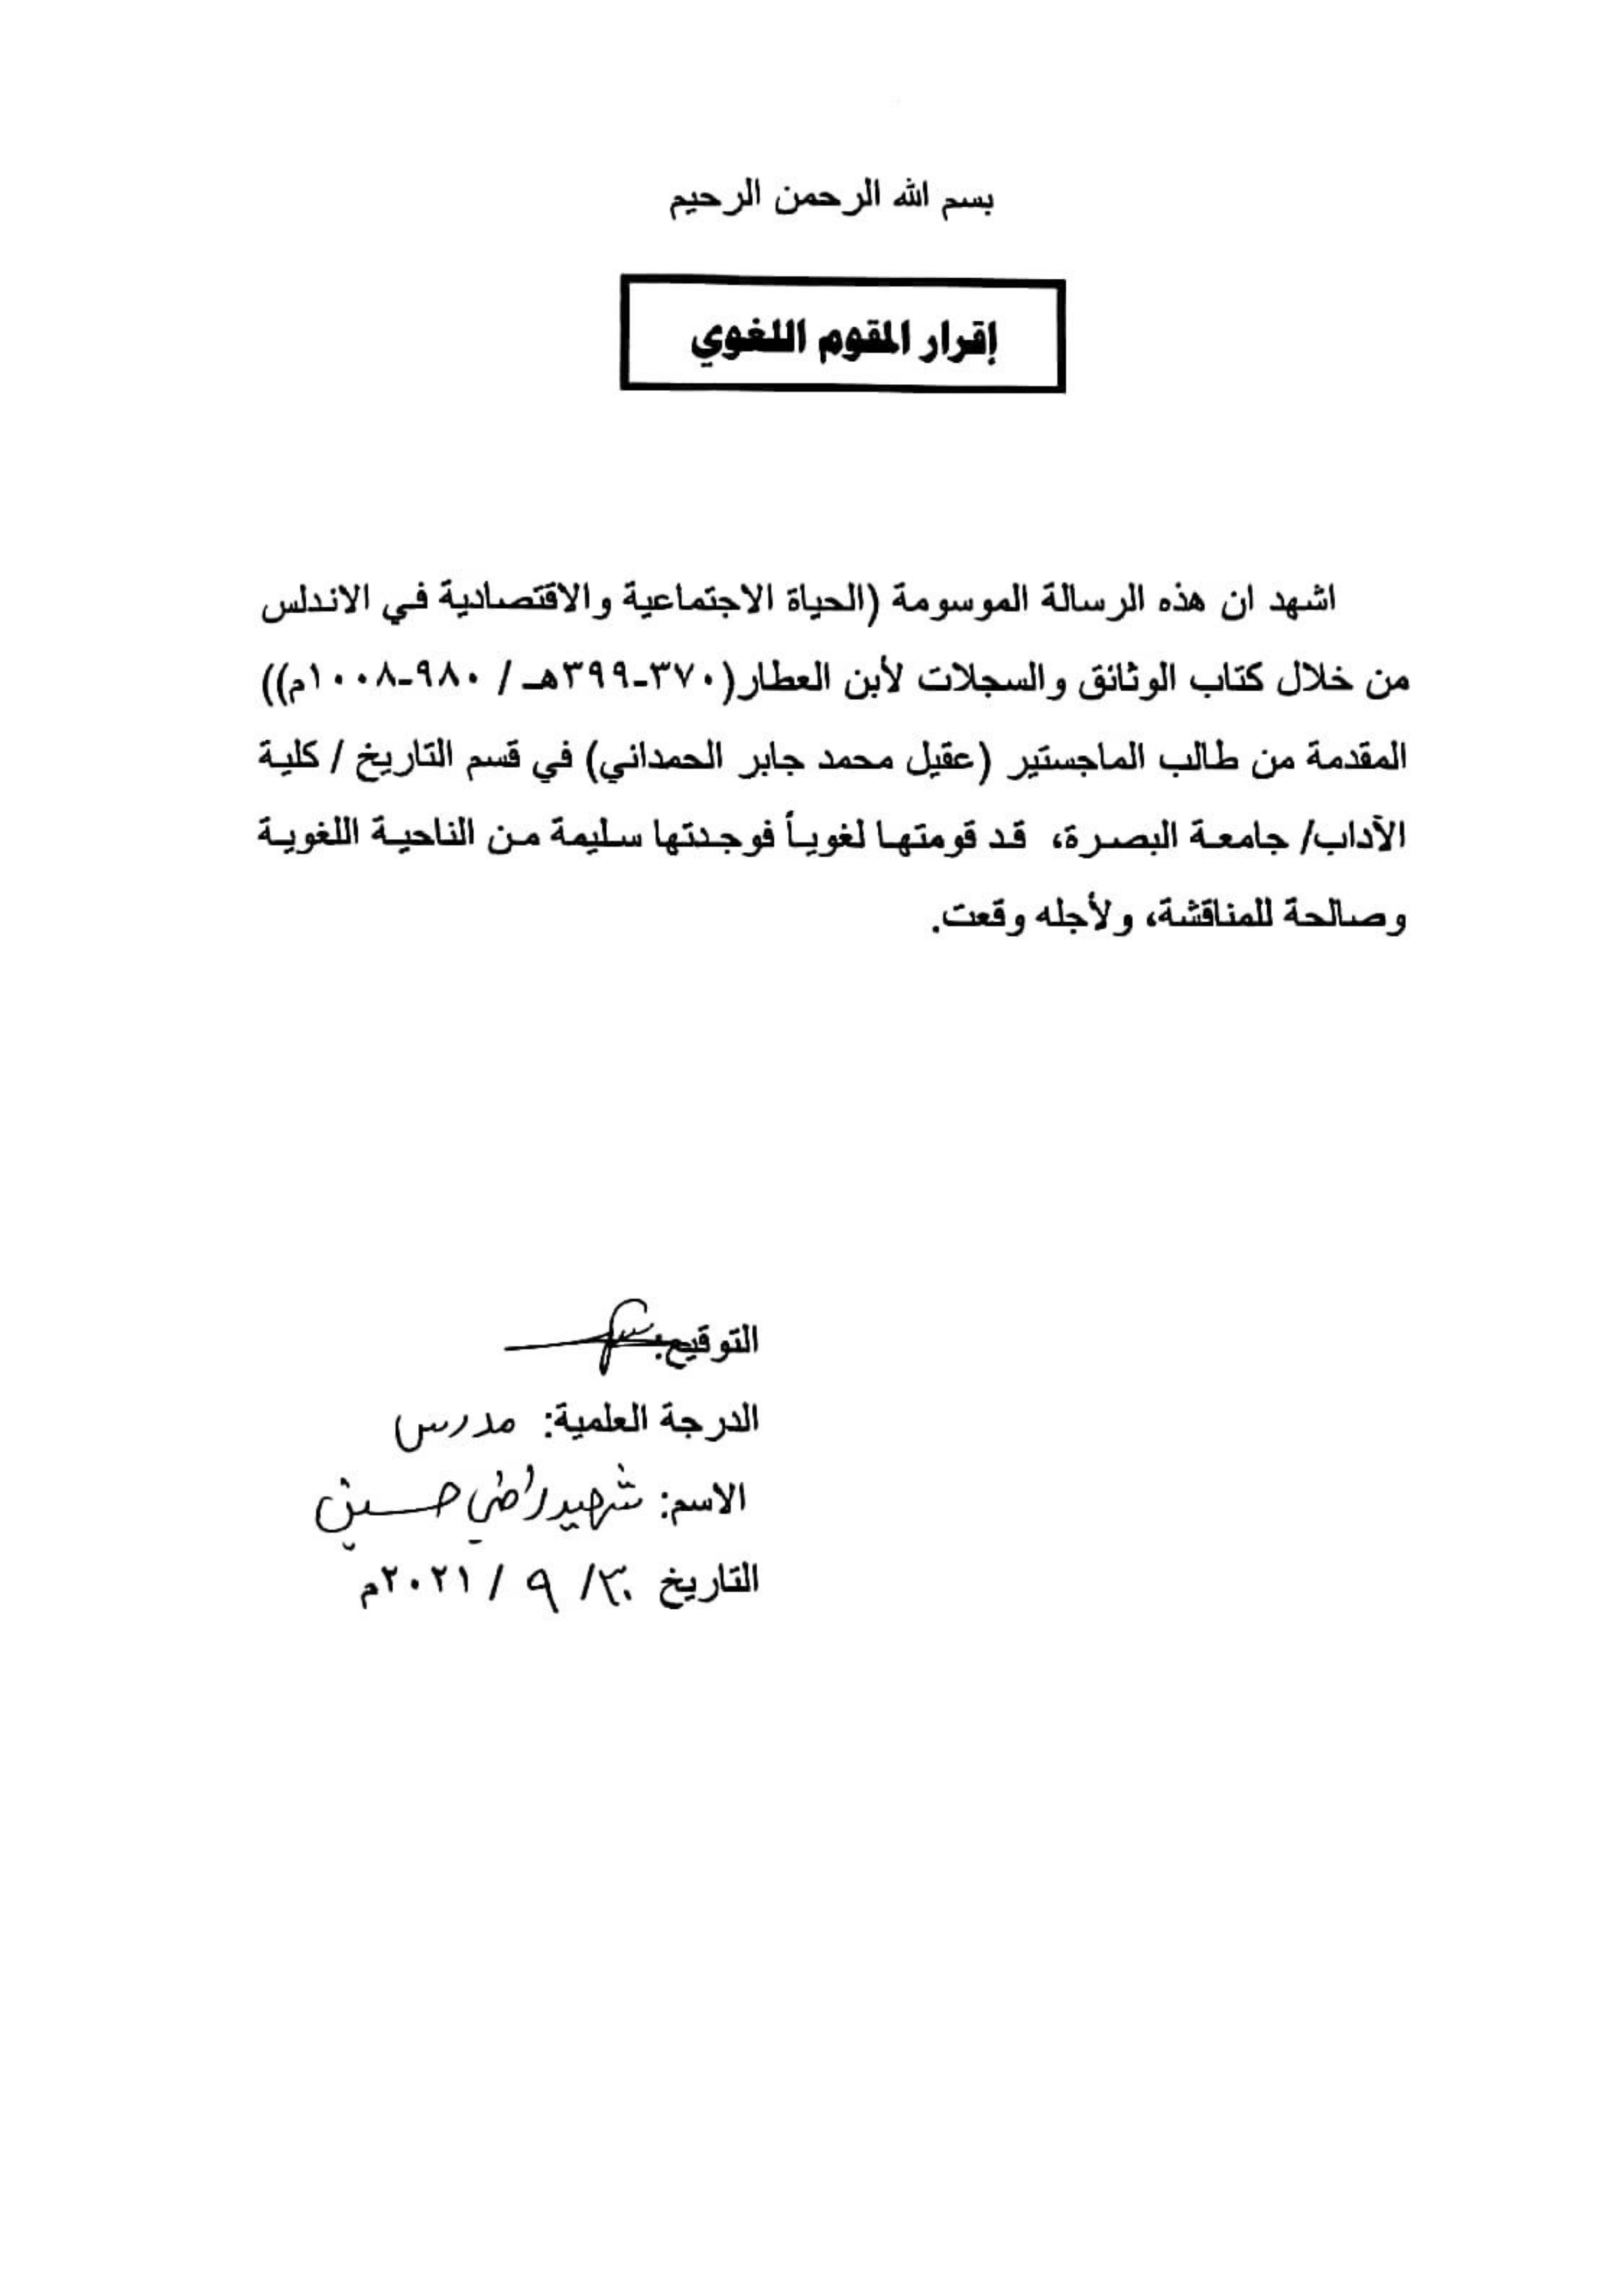 بسم الله الرحمن الرحيم
إقرار المقوم اللغوي
اشهد ان هذه الرسالة الموسومة (الحياة الاجتماعية والاقتصادية في الاندلس
من خلال كتاب الوثائق والسجلات لأبن العطار(٣٧٠-٣٩٩هـ / ٩٨٠-١٠٠٨م))
المقدمة من طالب الماجستير (عقيل محمد جابر الحمداني) في قسم التاريخ / كلية
الآداب/ جامعة البصرة، قد قومتها لغوياً فوجدتها سليمة من الناحية اللغوية
وصالحة للمناقشة، ولأجله وقعت.
التوقيع:
الدرجة العلمية: مدرس
الاسم: شهيد راضي حسين
التاريخ ٣٠/ ٩ / ٢٠٢١م